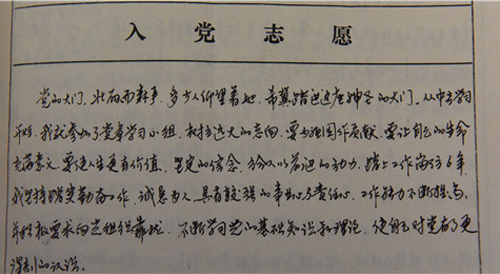 入党志愿
党的大门,壮丽而庄严,多少人仰望着她,希冀踏进这座神圣的大门。从中专学习
开始,我就参加了党章学习小组,树立远大的志向,要为祖国作贡献,要让自己的生命
充满意义,要使人生更有价值,坚定的信念,给人以前进的动力,踏上工作岗位6年,
我坚持踏实勤奋工作,诚恳为人,具有较强的事业心与责任心,工作能力不断提高,
并积极要求向党组织靠拢,不断学习党的基础知识和理论,使自己对党有了更
深刻的认识。